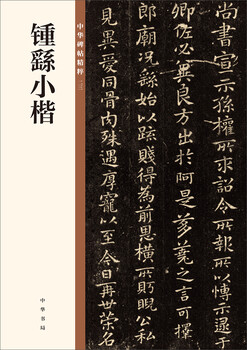 锺繇小楷
中华碑帖精粹
中华书局
尚書宣示孫權所求詔令所報所以博示
卿佐必冀良方出於阿是芻蕘之言可擇
郎廟況繇始以疏賤得為前恩橫所盱睨公私
見異愛同骨肉殊遇厚寵以至今日再世榮名